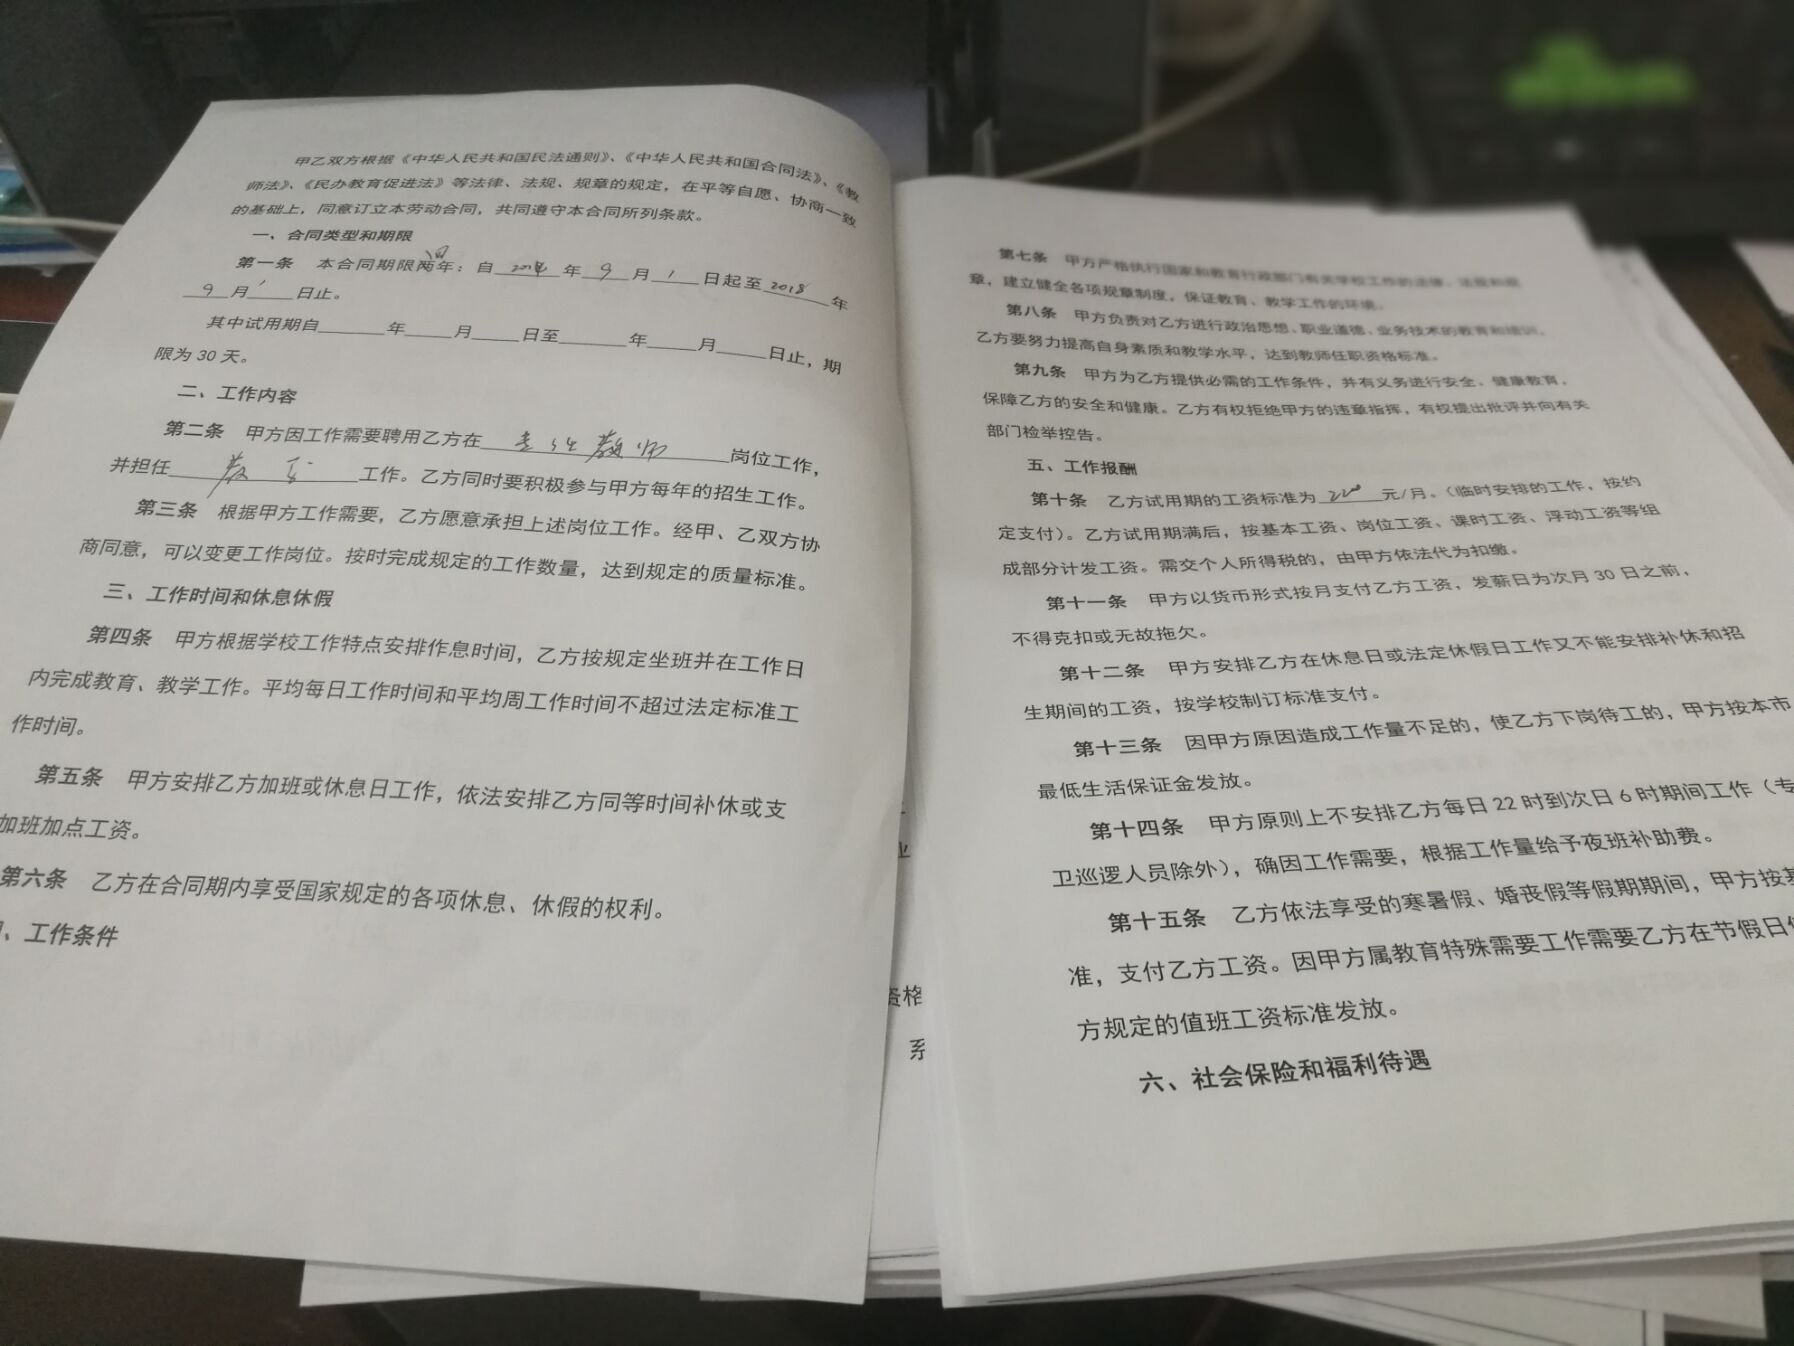 甲乙双方根据《中华人民共和国民法通则》、《中华人民共和国合同法》、《教
师法》、《民办教育促进法》等法律、法规、规章的规定，在平等自愿、协商一致
的基础上，同意订立本劳动合同，共同遵守本合同所列条款。
一、合同类型和期限
四
第一条 本合同期限两年：自2014年9月1日起至2018年
9月1日止。
其中试用期自______年_____月_____日至______年_____月_____日止，期
限为 30 天。
二、工作内容
第二条 甲方因工作需要聘用乙方在 教师 岗位工作，
并担任 工作。乙方同时要积极参与甲方每年的招生工作。
第三条 根据甲方工作需要，乙方愿意承担上述岗位工作。经甲、乙双方协
商同意，可以变更工作岗位。按时完成规定的工作数量，达到规定的质量标准。
三、工作时间和休息休假
第四条 甲方根据学校工作特点安排作息时间，乙方按规定坐班并在工作日
内完成教育、教学工作。平均每日工作时间和平均周工作时间不超过法定标准工
作时间。
第五条 甲方安排乙方加班或休息日工作，依法安排乙方同等时间补休或支
加班加点工资。
第六条 乙方在合同期内享受国家规定的各项休息、休假的权利。
、工作条件
业
资格
系
第七条 甲方严格执行国家和教育行政部门有关学校工作的法律、法规和规
章，建立健全各项规章制度，保证教育、教学工作的环境。
第八条 甲方负责对乙方进行政治思想、职业道德、业务技术的教育和培训，
乙方要努力提高自身素质和教学水平，达到教师任职资格标准。
第九条 甲方为乙方提供必需的工作条件，并有义务进行安全、健康教育，
保障乙方的安全和健康。乙方有权拒绝甲方的违章指挥，有权提出批评并向有关
部门检举控告。
五、工作报酬
第十条 乙方试用期的工资标准为 2200 元/月。（临时安排的工作，按约
定支付）。乙方试用期满后，按基本工资、岗位工资、课时工资、浮动工资等组
成部分计发工资。需交个人所得税的，由甲方依法代为扣缴。
第十一条 甲方以货币形式按月支付乙方工资，发薪日为次月 30 日之前，
不得克扣或无故拖欠。
第十二条 甲方安排乙方在休息日或法定休假日工作又不能安排补休和招
生期间的工资，按学校制订标准支付。
第十三条 因甲方原因造成工作量不足的，使乙方下岗待工的，甲方按本市
最低生活保证金发放。
第十四条 甲方原则上不安排乙方每日 22 时到次日 6 时期间工作（专
卫巡逻人员除外），确因工作需要，根据工作量给予夜班补助费。
第十五条 乙方依法享受的寒暑假、婚丧假等假期期间，甲方按基
准，支付乙方工资。因甲方属教育特殊需要工作需要乙方在节假日值
方规定的值班工资标准发放。
六、社会保险和福利待遇